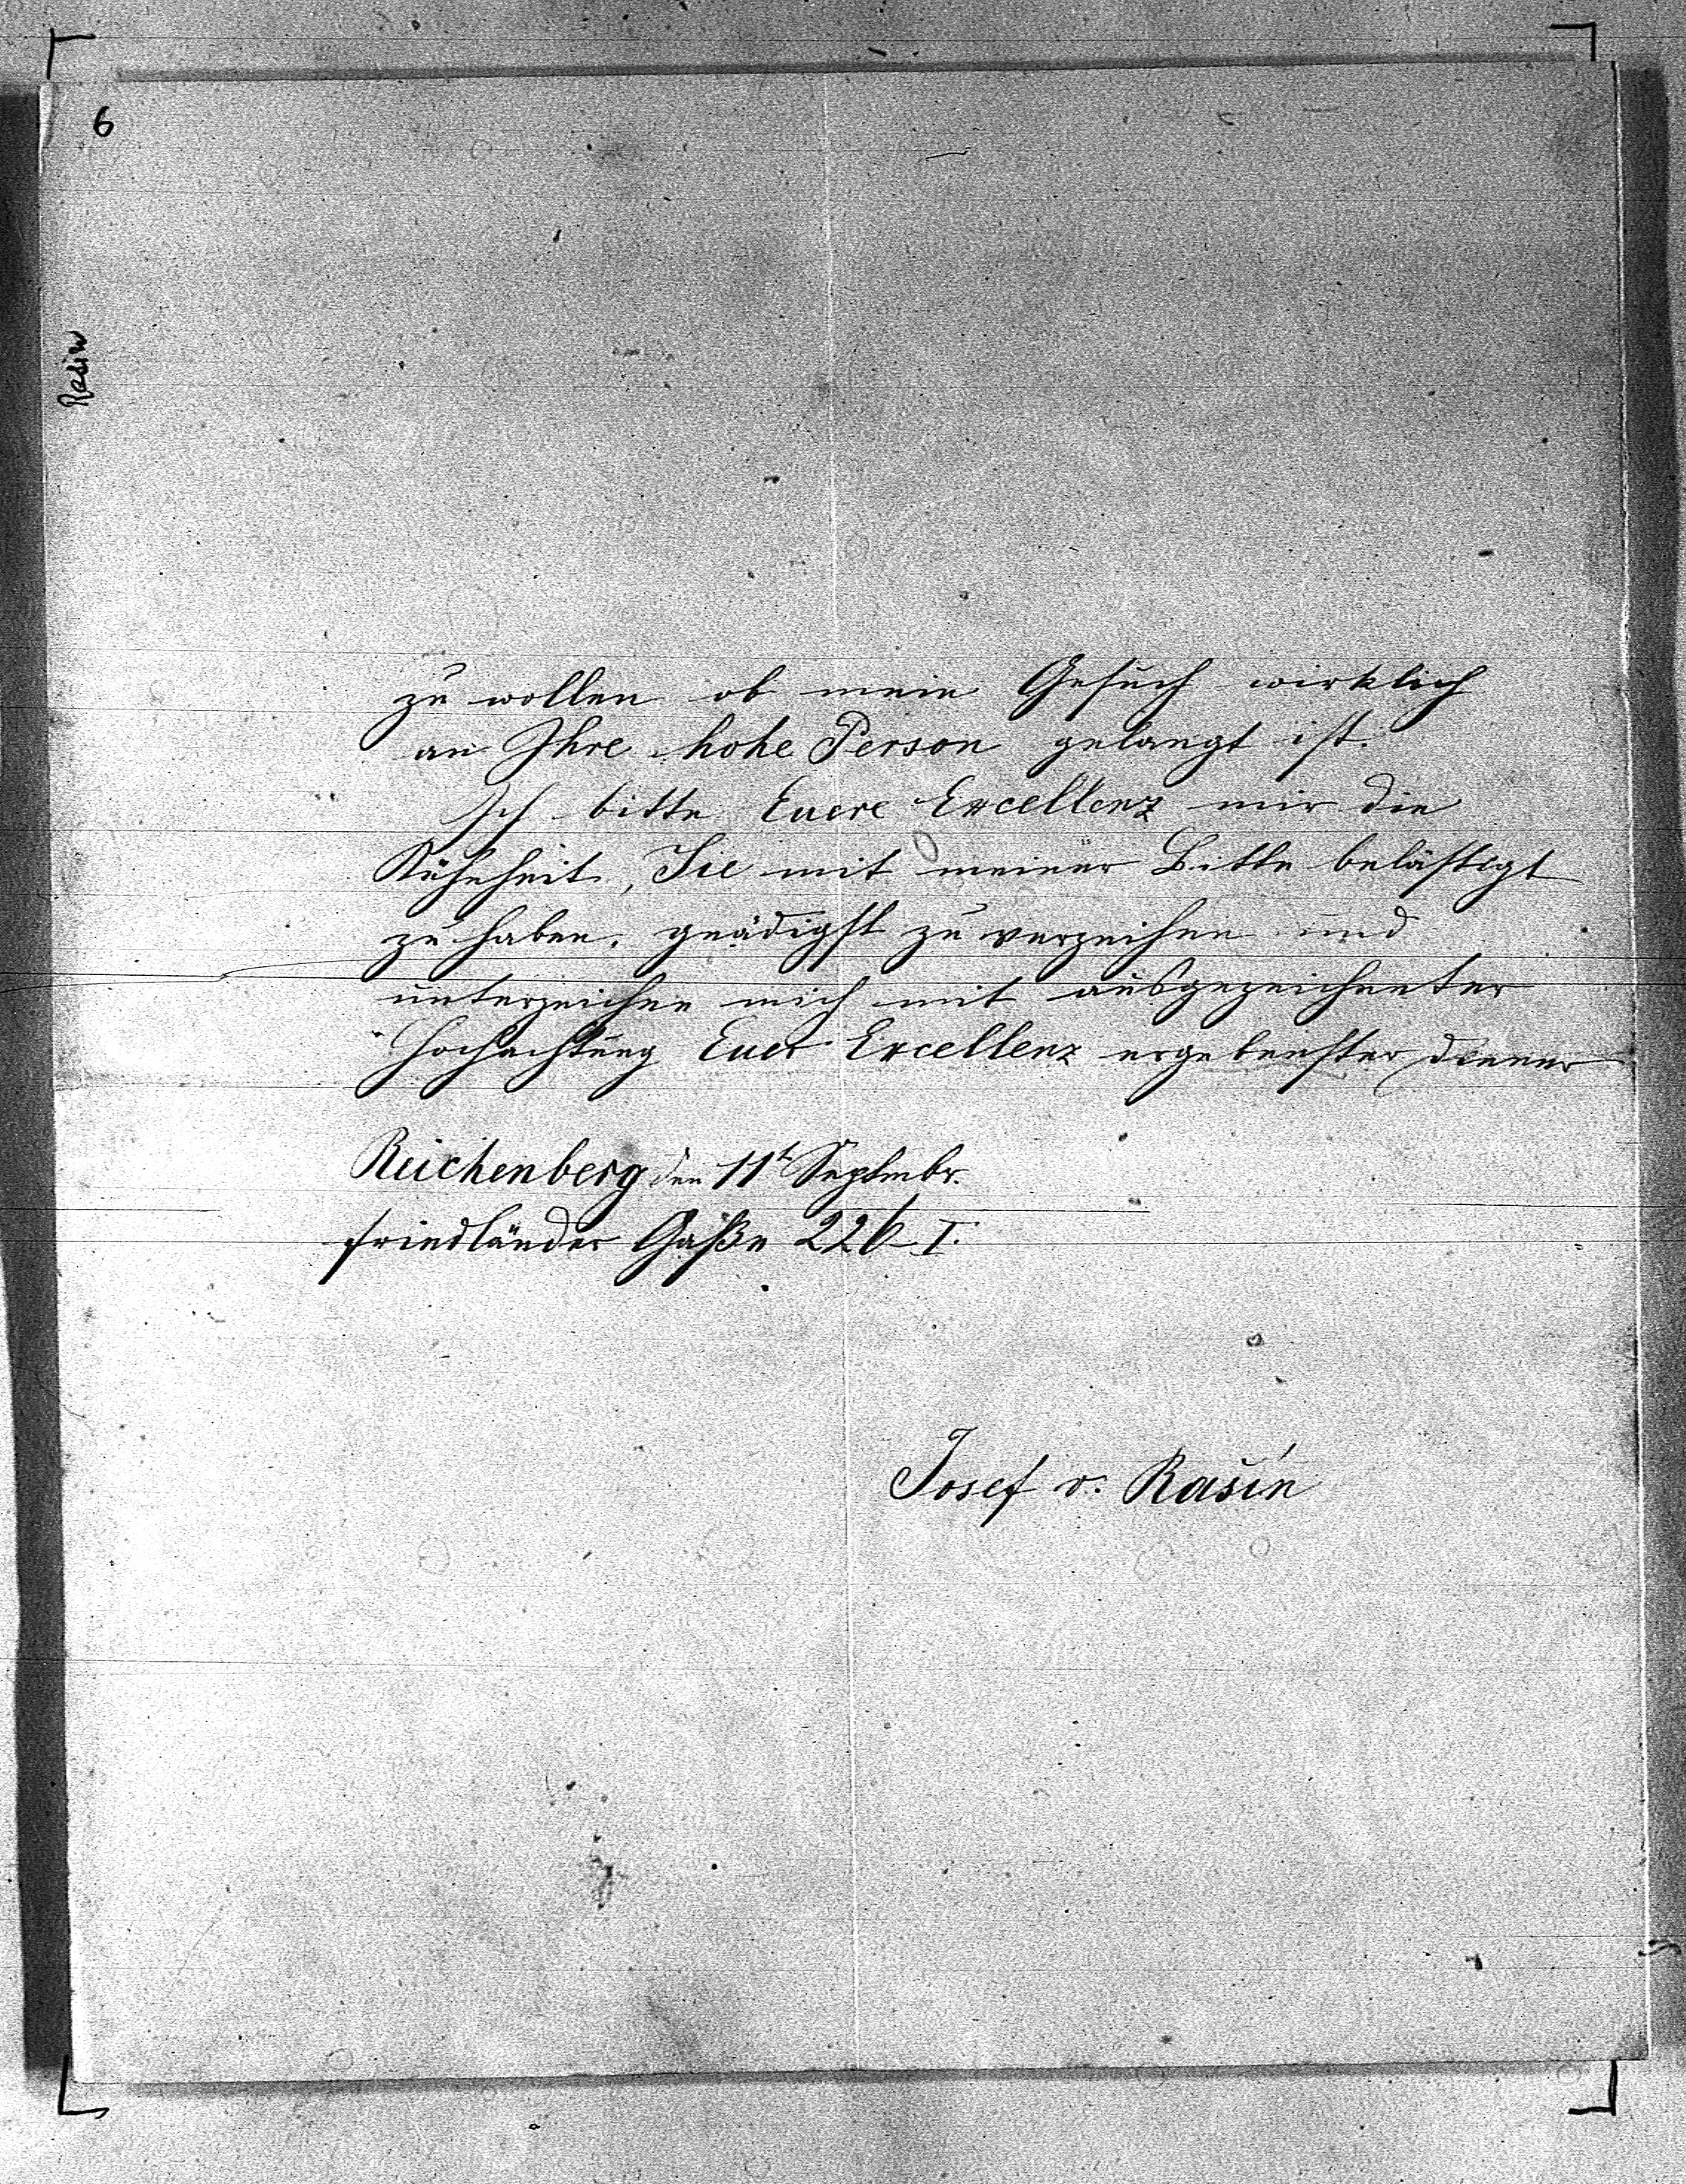 6
Rasin
zu wollen ob mein Gesuch wirklich
an Ihre hohe Person gelangt ist.
Ich bitte Euere Excellenz mir die
Kühnheit, Sie mit meiner Bitte belästigt
zu haben, gnädigst zu verzeihen und
unterzeichne mich mit ausgezeichneter
Hochachtung Euer Excellenz ergebenster Diener
Reichenberg den 11t Septembr.
Friedländer Gaße 226-I.
Josef v. Rašín